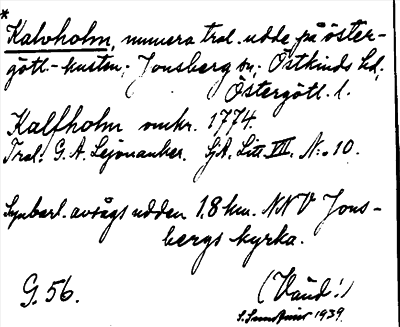 *
Kalvholm, numera tral. udde på öster-
götl.-kusten; Jonsberg sn; Östkinds hd;
Östergötl. l.
Kalfholm omkr. 1774.
Tral. G. A. Lejonanker. SjA. Litt VII. N:o 10.
Synbarl. avsågs udden 1.8 km. NNV Jons-
bergs kyrka.
G. 56.
(Vänd!)
1939